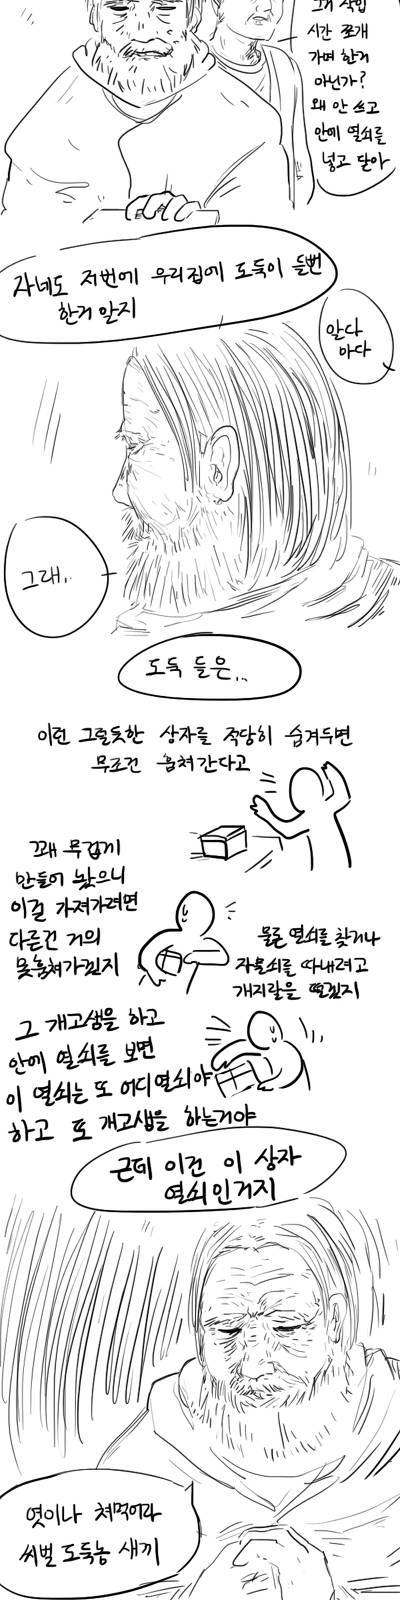 그거 작업
시간 쪼개
가며 한거
아닌가?
왜 안 쓰고
안에 열쇠를
넣고 닫아
자네도 저번에 우리집에 도둑이 들뻔
한거 알지
알다
마다
그래..
도둑 들은...
이런 그럴듯한 상자를 적당히 숨겨두면
무조건 훔쳐간다고
꽤 무겁게
만들어 놨으니
이걸 가져가려면
다른건 거의
못훔쳐가겠지
물론 열쇠를 찾거나
자물쇠를 따내려고
개지랄을 떨겠지
그 개고생을 하고
안에 열쇠를 보면
이 열쇠는 또 어디열쇠야
하고 또 개고생을 하는거야
근데 이건 이 상자
열쇠인거지
엿이나 쳐먹어라
씨벌 도둑놈 새끼